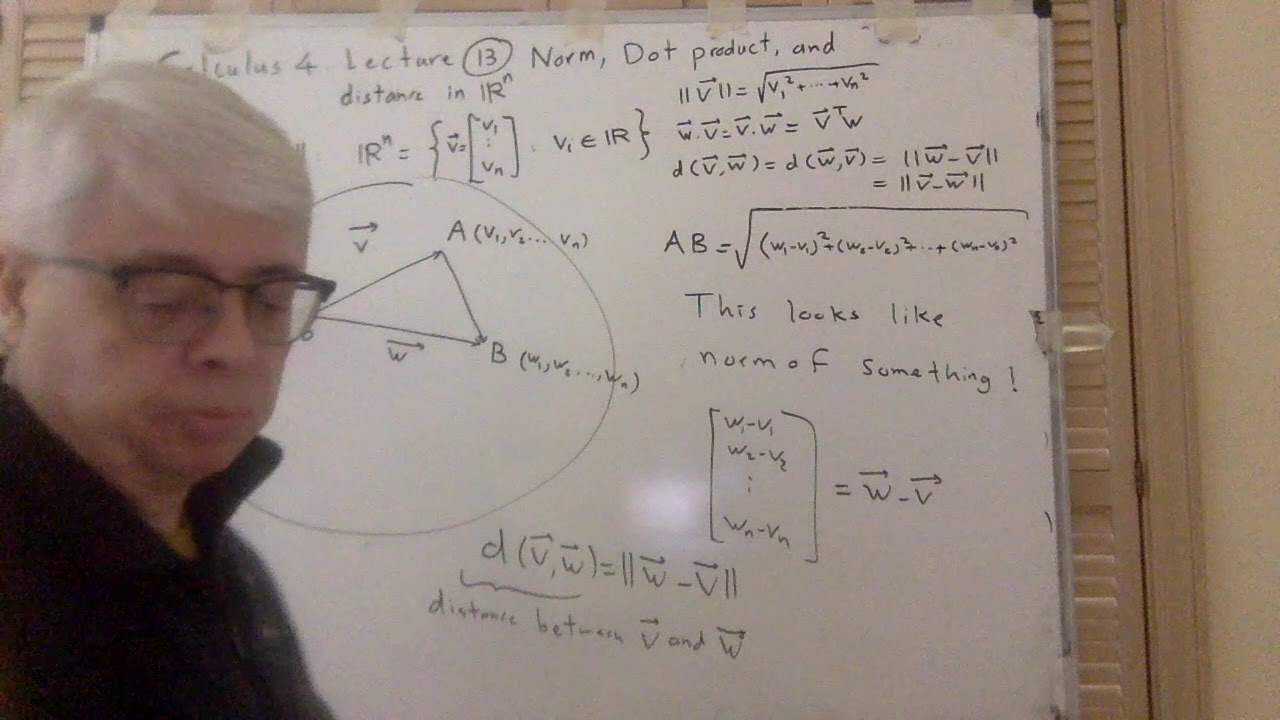 Calculus 4 Lecture 13 Norm, Dot product, and
distance in ℝⁿ
||v⃗|| = √(v₁² + ⋯ + vₙ²)
ℝⁿ = { v⃗ = [v₁ ⋮ vₙ] : vᵢ ∈ ℝ }
w⃗ · v⃗ = v⃗ · w⃗ = v⃗ᵀw
d(v⃗, w⃗) = d(w⃗, v⃗) = ||w⃗ − v⃗||
= ||v⃗ − w⃗||
v⃗
A (v₁, v₂ ... vₙ)
w⃗
B (w₁, w₂ ..., wₙ)
AB = √((w₁−v₁)² + (w₂−v₂)² + ⋯ + (wₙ−vₙ)²)
This looks like
norm of something!
[w₁−v₁
w₂−v₂
⋮
wₙ−vₙ] = w⃗ − v⃗
d(v⃗, w⃗) = ||w⃗ − v⃗||
distance between v⃗ and w⃗